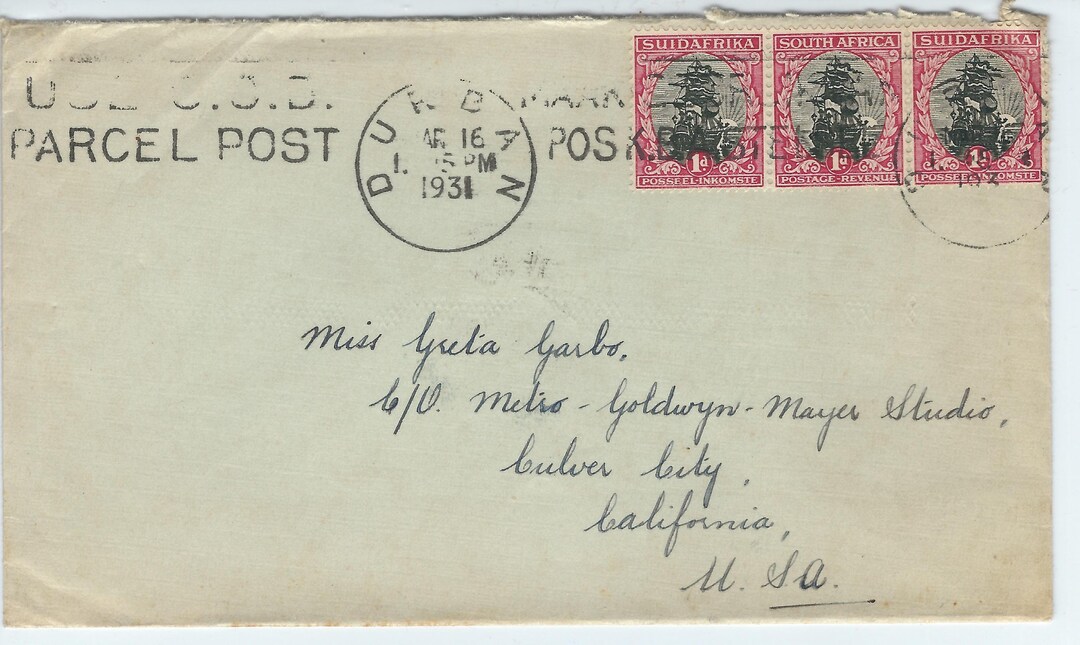 USE C.O.D.
PARCEL POST
DURBAN
16
PM
1931
POS
SUIDAFRIKA
1d
POSSEEL-INKOMSTE
SOUTH AFRICA
1d
POSTAGE-REVENUE
SUIDAFRIKA
1d
POSSEEL-INKOMSTE
Miss Greta Garbo,
C/O. Metro-Goldwyn-Mayer Studio,
Culver City,
California,
U.S.A.